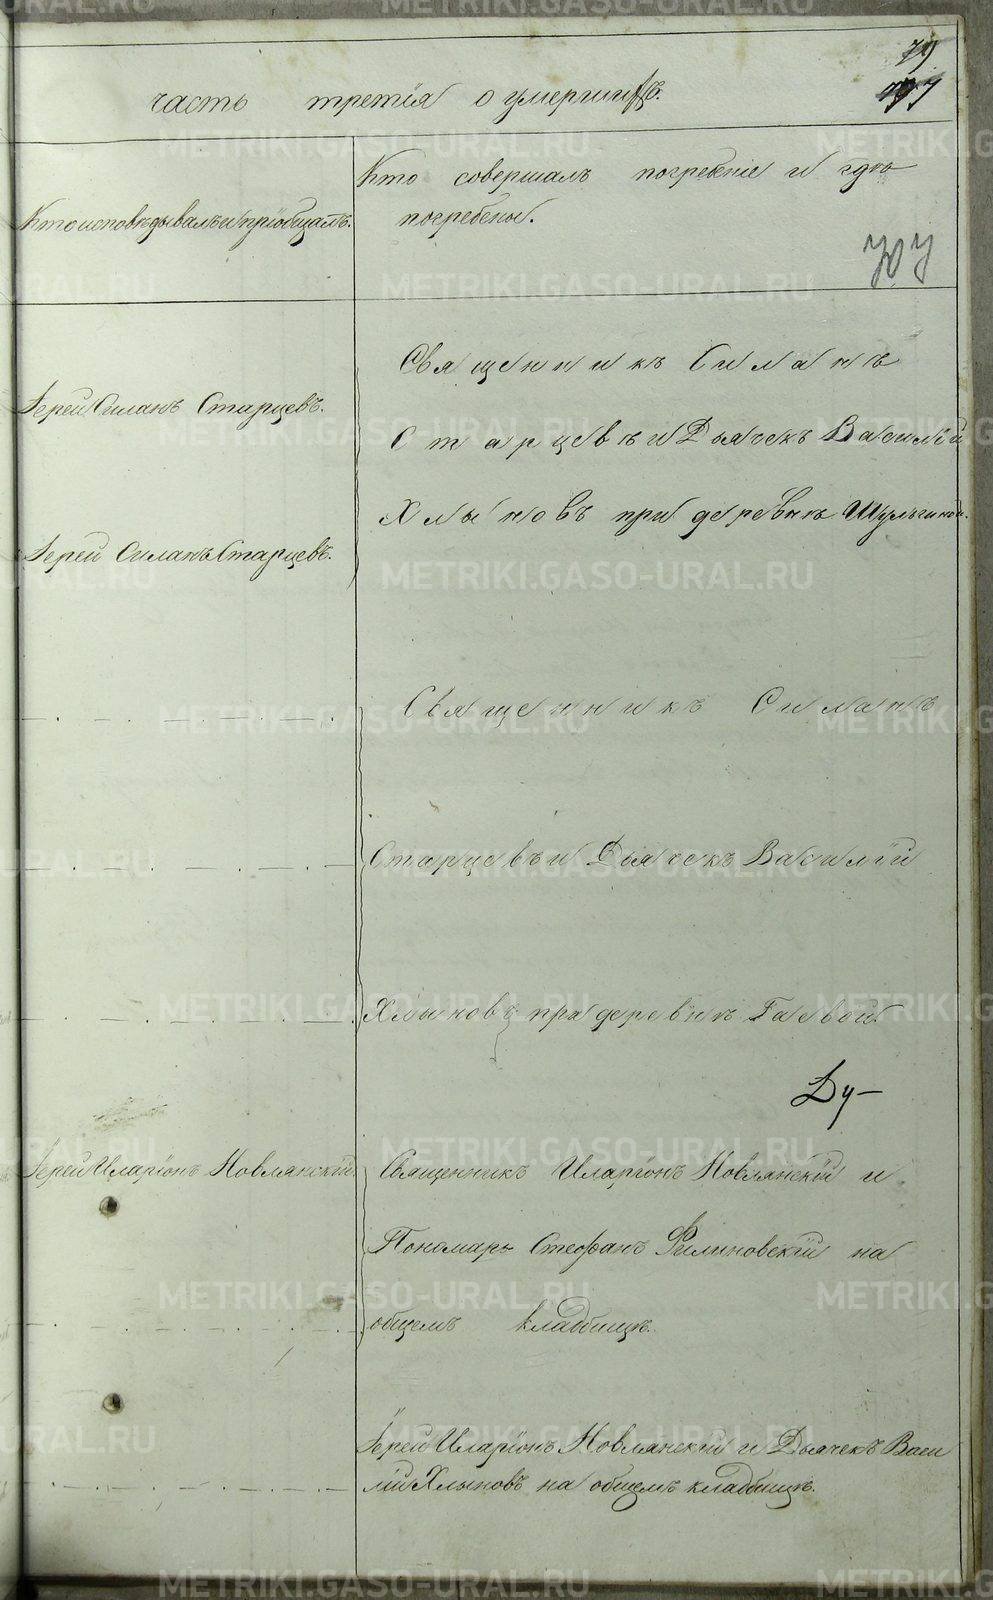 79
часть третія о умершихъ.
Кто исповѣдывалъ и пріобщалъ.
Кто совершалъ погребеніе и гдѣ
погребены.
Священникъ Силанъ
Іерей Силанъ Старцевъ.
Старцевъ и Дьячекъ Василій
Хлыновъ при деревнѣ Шульгиной.
Іерей Силанъ Старцевъ.
Священникъ Силанъ
Старцевъ и Дьячекъ Василій
Хлыновъ при деревнѣ Гаевой.
Ду-
Іерей Иларіонъ Новлянскій.
Священникъ Иларіонъ Новлянскій и
Пономарь Стефанъ Филиновскій на
общемъ кладбищѣ.
Іерей Иларіонъ Новлянскій и Дьячекъ Васи
лій Хлыновъ на общемъ кладбищѣ.
METRIKI.GASO-URAL.RU